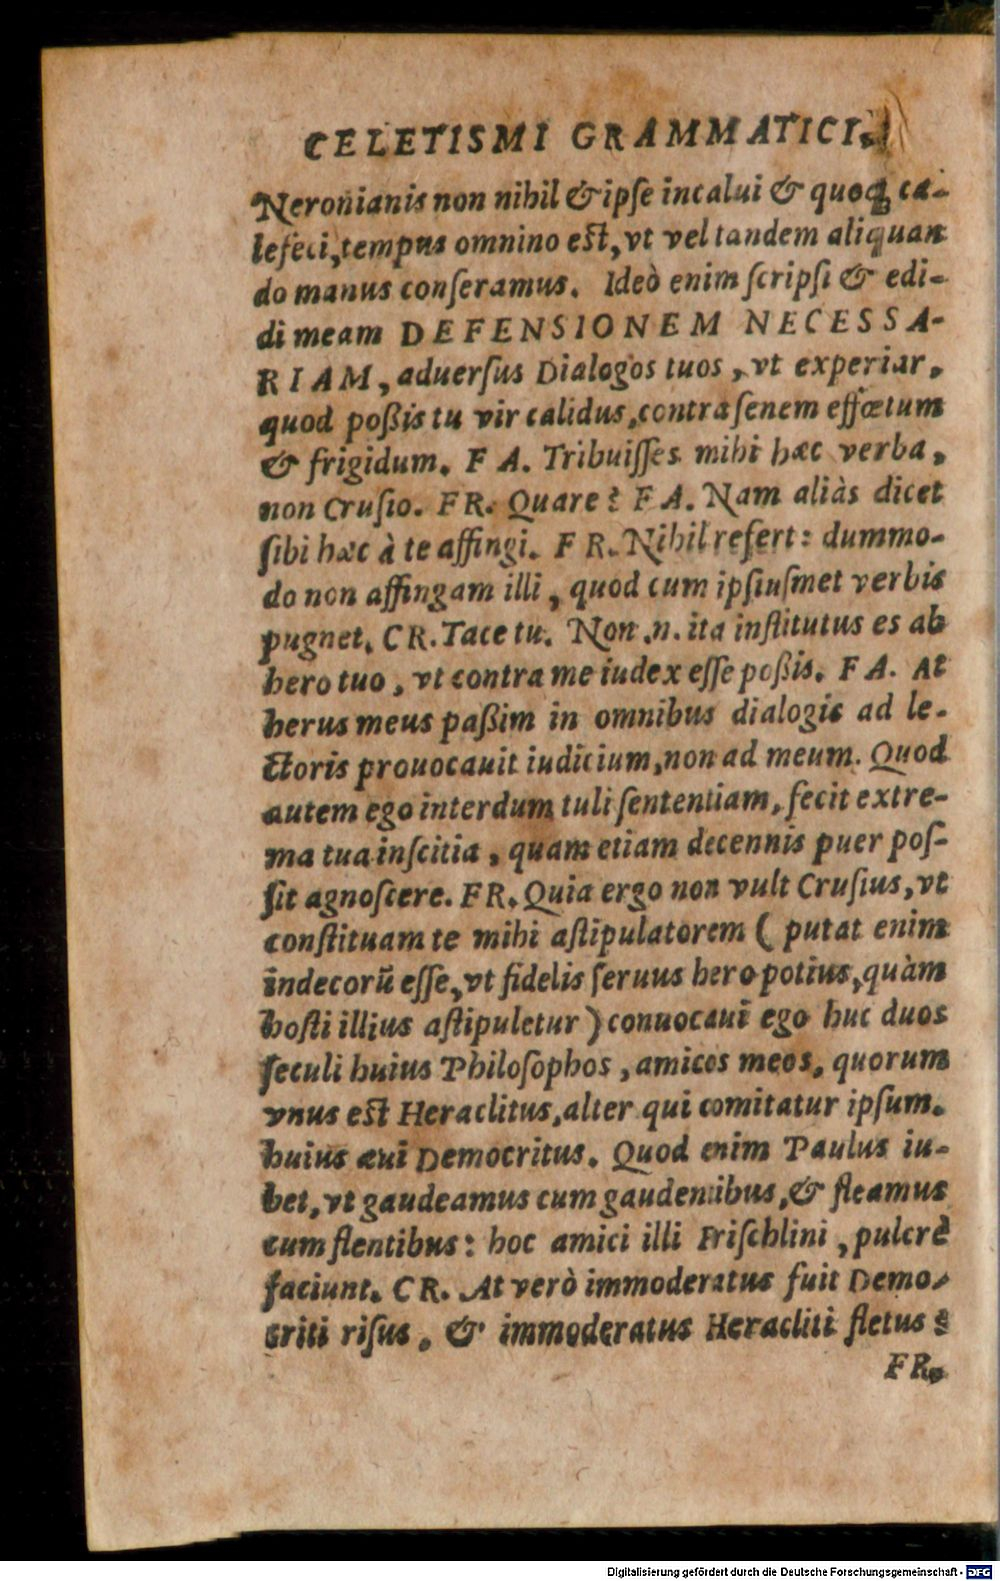 CELETISMI GRAMMATICI.
Neronianis non nihil & ipſe incalui & quoq; ca-
lefeci, tempus omnino eſt, vt vel tandem aliquan
do manus conſeramus. Ideò enim ſcripſi & edi-
di meam DEFENSIONEM NECESSA-
RIAM, aduerſus Dialogos tuos, vt experiar,
quod poßis tu vir calidus, contra ſenem effœtum
& frigidum. FA. Tribuiſſes mihi hæc verba,
non Cruſio. FR. Quare? FA. Nam aliàs dicet
ſibi hæc à te affingi. FR. Nihil refert: dummo-
do non affingam illi, quod cum ipſiuſmet verbis
pugnet. CR. Tace tu. Non .n. ita inſtitutus es ab
hero tuo, vt contra me iudex eſſe poßis. FA. At
herus meus paßim in omnibus dialogis ad le-
ctoris prouocauit iudicium, non ad meum. Quod
autem ego interdum tuli ſententiam, fecit extre-
ma tua inſcitia, quam etiam decennis puer poſ-
ſit agnoſcere. FR. Quia ergo non vult Cruſius, vt
conſtituam te mihi aſtipulatorem ( putat enim
indecorū eſſe, vt fidelis ſeruus hero potius, quàm
hoſti illius aſtipuletur ) conuocaui ego huc duos
ſeculi huius Philoſophos, amicos meos, quorum
vnus eſt Heraclitus, alter qui comitatur ipſum.
huius æui Democritus. Quod enim Paulus iu-
bet, vt gaudeamus cum gaudentibus, & fleamus
cum flentibus: hoc amici illi Friſchlini, pulcrè
faciunt. CR. At verò immoderatus fuit Demo-
criti riſus, & immoderatus Heracliti fletus?
FR.
Digitalisierung gefördert durch die Deutsche Forschungsgemeinschaft - DFG